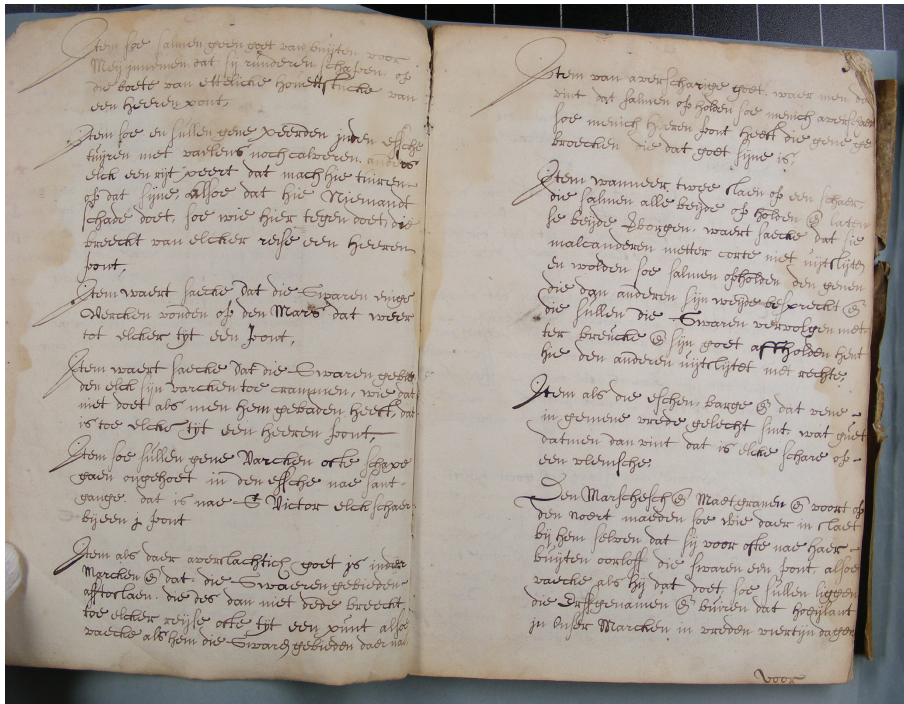 Item soe salmen geen goet van buijten voor
Meij innemen dat sij runderen schapen, op
die boete van ettelicke stucke van
een Heeren pont,
Item soe en sullen gene peerden inden essche
tuijren met vaelens noch calveren,
elck een rijt peert dat mach hie tuiren
op dat sijne, alsoe dat hie Niemandt
schade doet, soe wie hier tegen doet, die
breeckt van elcker reise een Heeren
pont,
Item waert saecke dat die Swaren enige
Vercken vonden op den Mars dat weer
tot elcker tijt een pont,
Item waert saecke dat die Swaren geboden
den elck sijn varcken toe crammen, wie dat
niet doet als men hem gebaden heeft, dat
is toe elcke tijt een Heeren pont,
Item soe sullen gene Varcken ofte schape
gaen ongehoet in den essche nae sant
gange, dat is nae S Victor elck schaer
bijeren j pont
Item als daer averlachtich goet is inder
Marcken & dat die Swaeren gebieden
afftoslaen, die des dan niet dede breeckt,
toe elcker reijse ofte tijt een punt alsoe
vaecke als hem die Swaren gebieden daer nae
Item van averscharige goet, waer men dat
vint dat salmen op holden soe menich averschar
soe menich Heeren pont heeft die gene ge
broecken die dat goet sijne is,
Item wanneer twee slaen op een schaer,
die salmen alle beijde op holden & laten
se beijde borgen, waert saecke dat sie
malcanderen metter corte niet uijtslijten
en wolden soe salmen opholden den genen
die den anderen sijn weijde bespreckt &
die sullen die Swaren vervolgen met
ter breucke & sijn goet affholden hent
hie den anderen uijtslijtet met rechte,
Item als die esschen, barge & dat vene
in gemene vrede gelecht sint, wat guet
datmen dan vint dat is elcke schare op
een vlemsche,
Den Marschesch & Maetgraven & voort op
den Noert maeden soe wie daer in slaet
bij hem selven dat sij voor ofte nae haer
buijten oorloff die Swaren een pont, alsoe
vaecke als hij dat doet, soe sullen liggen
die Erffgenamen & buiren dat hogelant
in unser Marcken in vreden viertijn dagen
voor